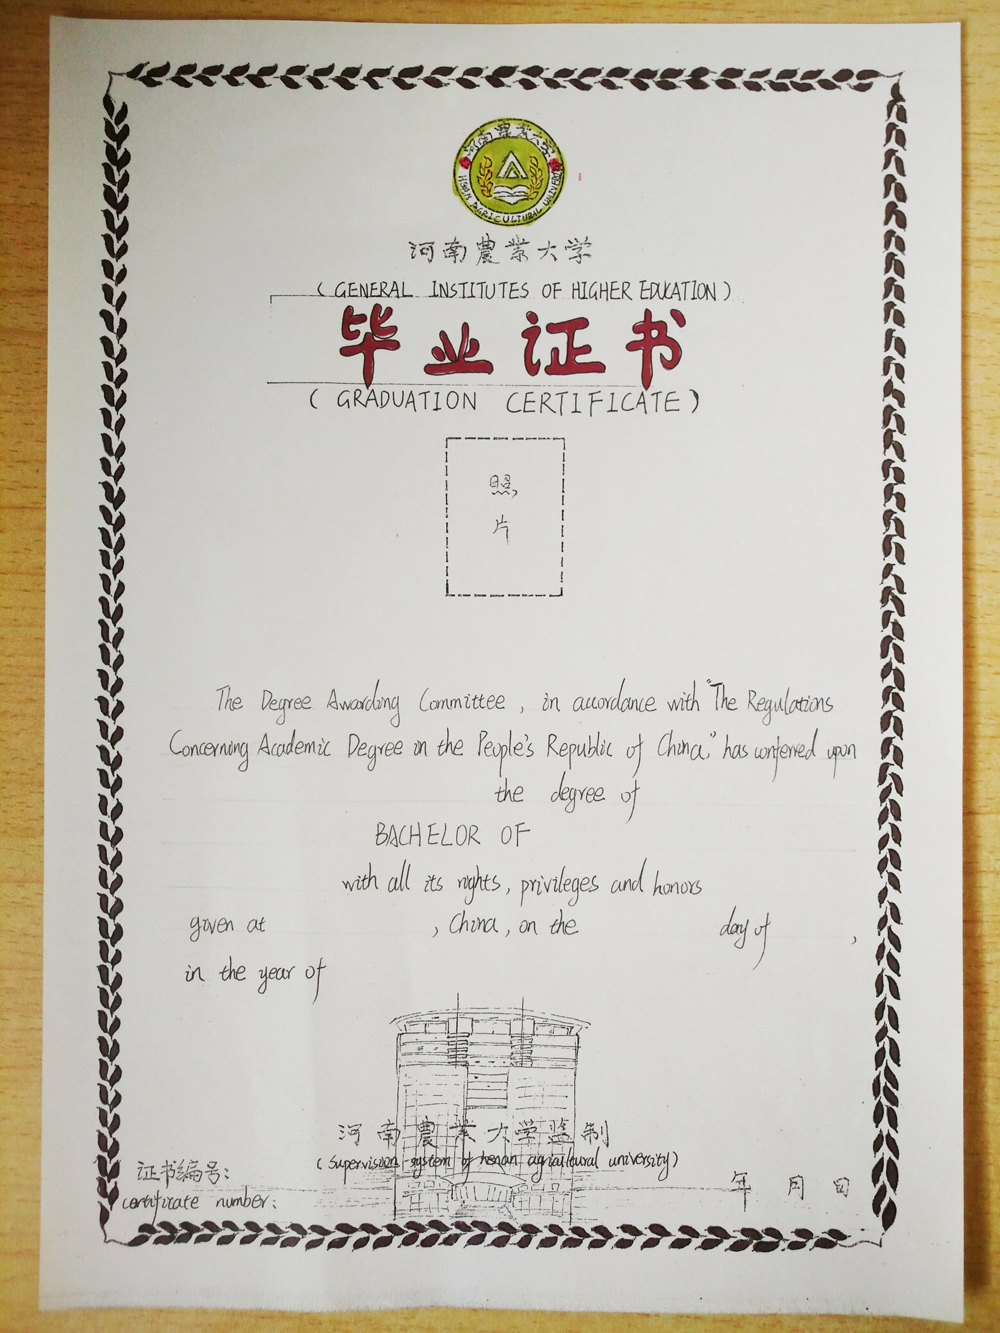 河南農業大学
HENAN AGRICULTURAL UNIVERSITY
河南農業大学
( GENERAL INSTITUTES OF HIGHER EDUCATION )
毕业证书
( GRADUATION CERTIFICATE )
照
片
The Degree Awarding Committee , in accordance with "The Regulations
Concerning Academic Degree in the People's Republic of China," has conferred upon
the degree of
BACHELOR OF
with all its rights, privileges and honors
given at , China, on the day of ,
in the year of
河南農業大学监制
( supervision system of henan agricultural university )
证书编号:
certificate number:
年 月 日